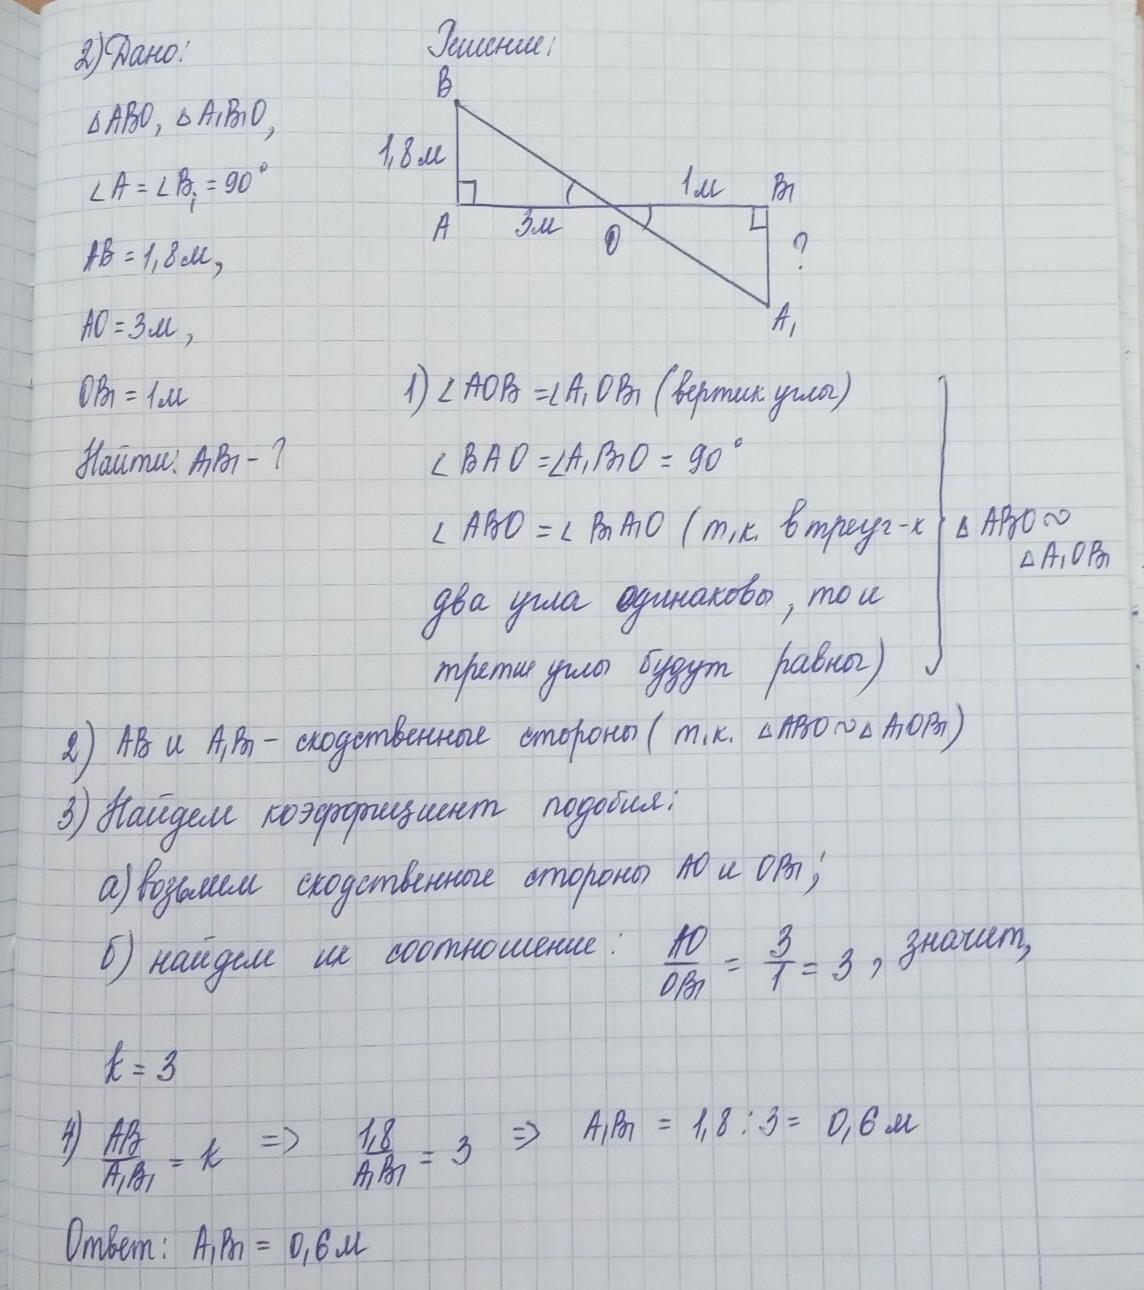 2) Дано:
Решение:
△ABO, △A₁B₁O,
∠A = ∠B₁ = 90°
AB = 1,8м,
AO = 3м,
OB₁ = 1м
Найти: A₁B₁ - ?
B
1,8м
A
3м
O
1м
B₁
?
A₁
1) ∠AOB = ∠A₁OB₁ (вертик углы)
∠BAO = ∠A₁B₁O = 90°
∠ABO = ∠B₁A₁O (т.к. в треуг-х
два угла одинаковы, то и
третие углы будут равны)
△ABO ∾
△A₁OB₁
2) AB и A₁B₁ - сходственные стороны (т.к. △ABO ∾ △A₁OB₁)
3) Найдем коэффициент подобия:
а) возьмем сходственные стороны AO и OB₁;
б) найдем их соотношение: AO/OB₁ = 3/1 = 3, значит,
k = 3
4) AB/A₁B₁ = k => 1,8/A₁B₁ = 3 => A₁B₁ = 1,8 : 3 = 0,6м
Ответ: A₁B₁ = 0,6м